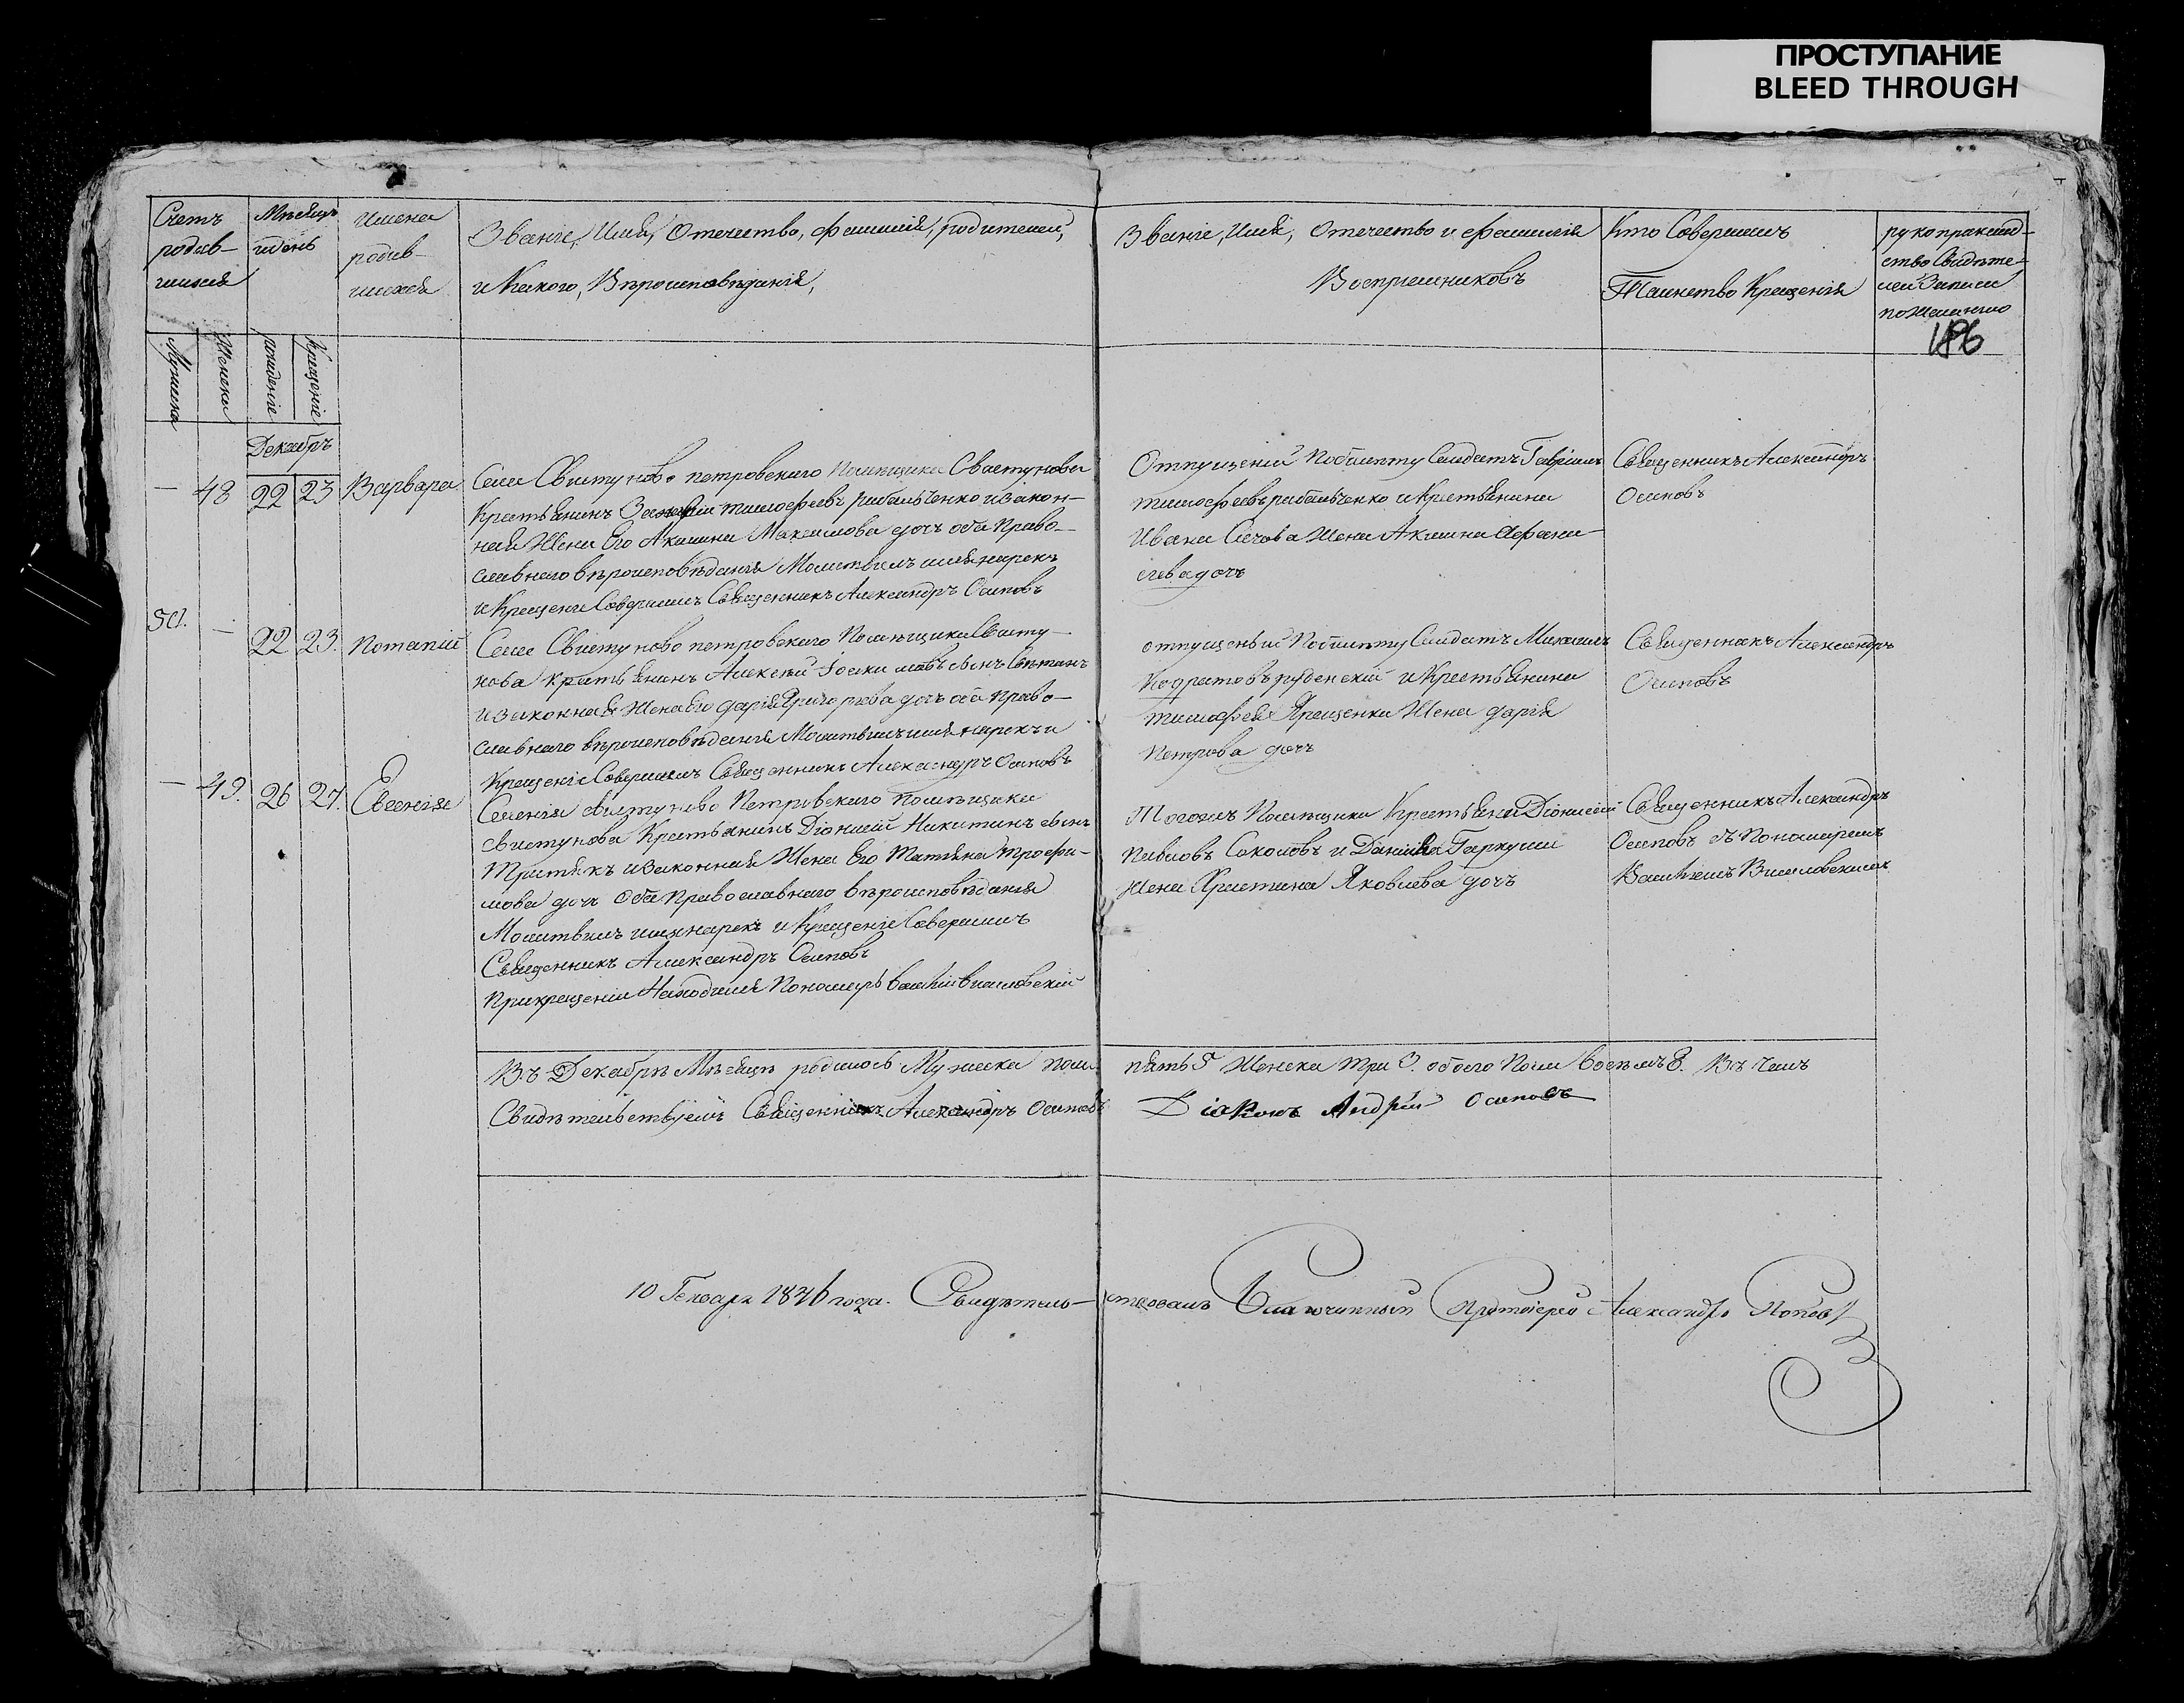 ПРОСТУПАНИЕ
BLEED THROUGH
Счетъ
родив-
шихся
Мѣсяцъ
идень
имена
родив-
шихся
Званіе, Имя, Отечество, фамилія, родителей,
и Какого, Вѣроисповѣданія,
Званіе, Имя, Отечество и фамилія
Воспріемниковъ
Кто Совершалъ
Таинство Крещенія
рукоприклад-
ство Свидѣте-
лей Записи
пожеланію
186
Мужеска
Женска
рожденіе
Крещеніе
Декабрь
— 48 22 23 Варвара
Села Свистуново петровского Помѣщика Свистунова
Крестьянинъ тимофеевъ рибальченко изакон-
ная Жена Его Акилина Максимова дочъ оба Право-
славнаго вѣроисповѣданія Молитвилъ имянарекъ
и Крещеніе Совершилъ Священникъ Александръ Осиповъ
Отпущеній Побилѣту Салдатъ Гавріилъ
тимофеевърибальченко и Крестьянина
Ивана Жена Акилина Афана-
сіева дочъ
Священникъ Александръ
Осиповъ
50. — 22 23. Потапій
Села Свистуново петровского Помѣщика Свисту-
нова крестьянинъ Алексѣй сынъ
изаконная Жена Его дарія Григорьева дочъ оба Право-
славнаго вѣроисповѣданія Молитвилъ имянарекъ и
Крещеніе Совершилъ Священникъ Александръ Осиповъ
отпущеный Побилѣту Салдатъ Михаилъ
Кодратовъ руденскій и Крестьянина
тимофея Яращенка Жена дарія
Петрова дочъ
Священникъ Александръ
Осиповъ
— 49. 26 27. Евгенія
Селенія свистуново Петровского помѣщика
свистунова Крестьянинъ Діонисій Никитинъ сынъ
Притякъ изаконная Жена Его Татяна Трофи-
мова дочъ Оба Православнаго вѣроисповѣданія
Молитвилъ имянарекъ и Крещеніе Совершилъ
Священникъ Александръ Осиповъ
Прикрещеніи Находился Пономаръ василій висиловскій
Тогожъ Помѣщика Крестьяни Діонисій
Павловъ Соколовъ и Даніила Гаркуши
Жена Христина Яковлева дочъ
Священникъ Александръ
Осиповъ съ Пономаремъ
Василіемъ
Въ Декабрѣ Мѣсяцѣ родилось Мужеска пола пять 5 Женска три 3. обоего Пола восѣмъ 8. Въ чемъ
Свидѣтельствуемъ Священникъ Александръ Осиповъ Діаконъ Андрей Осиповъ
10 Генваря 1836 года. Свидѣтель-ствовалъ Благочинный Протоіерей Александръ Поповъ